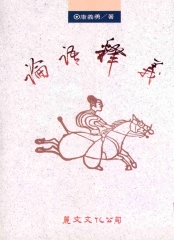 康義勇／著
論語釋義
麗文文化公司